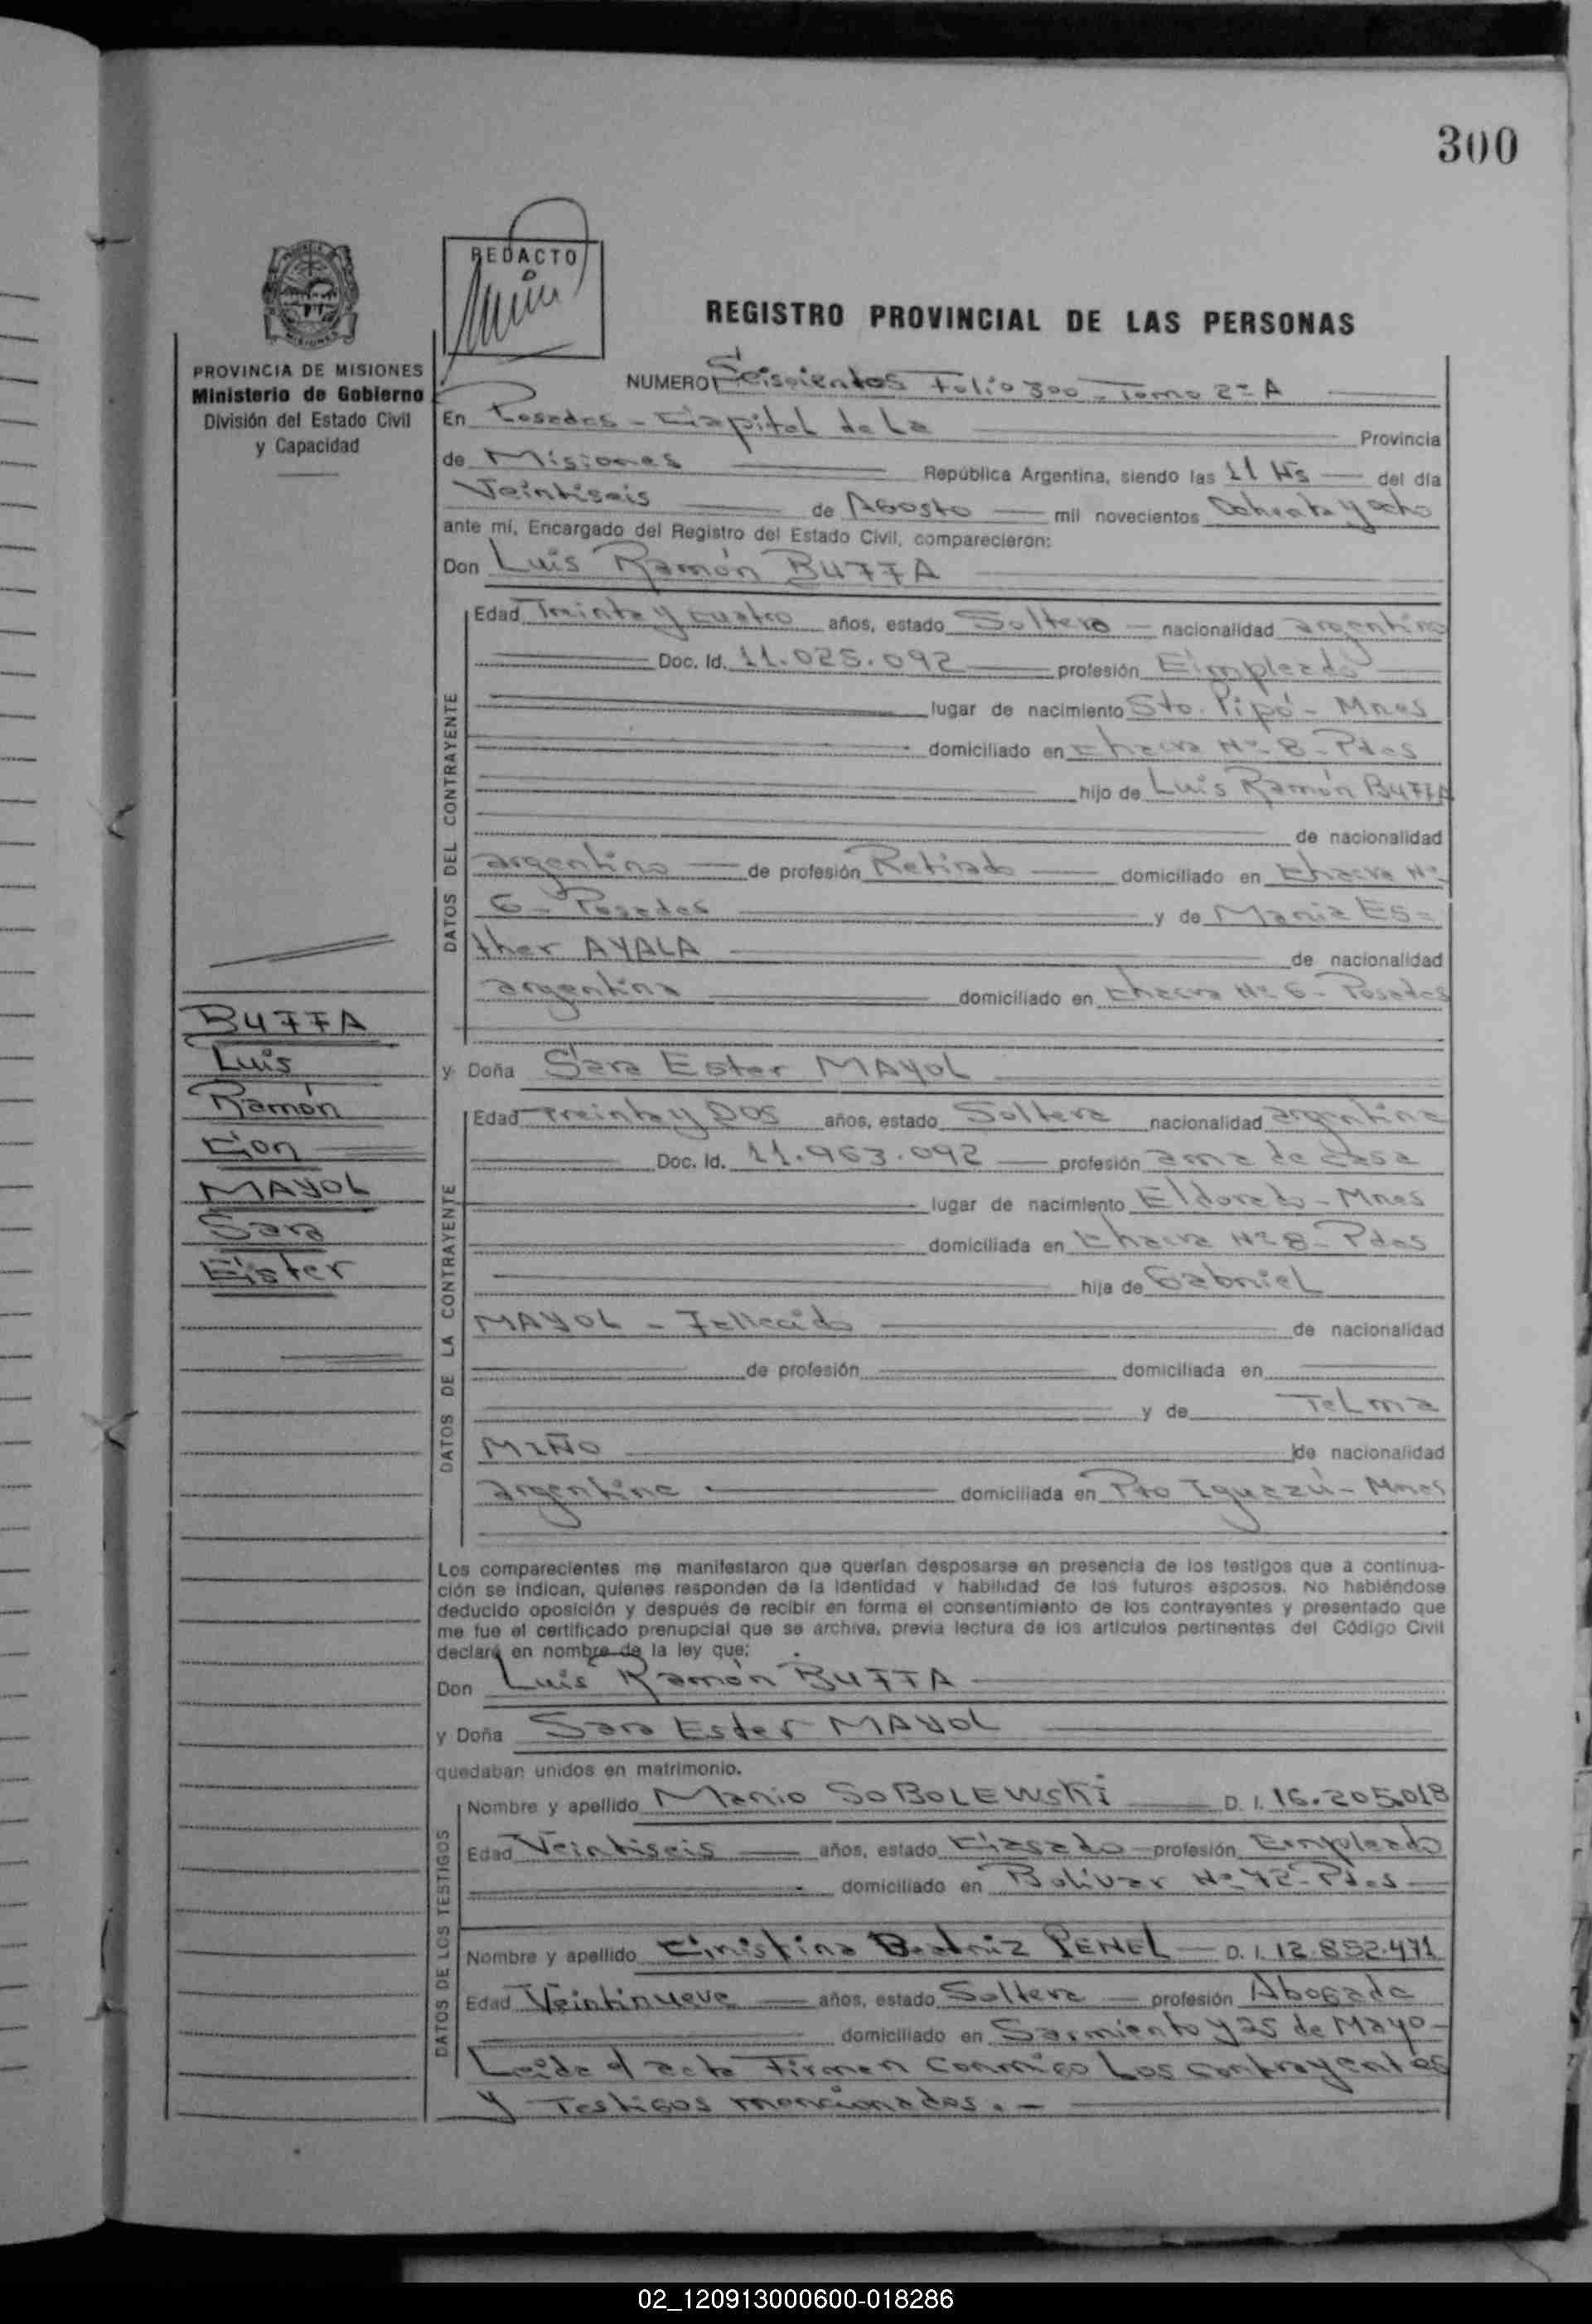 300
REDACTO
REGISTRO PROVINCIAL DE LAS PERSONAS
PROVINCIA DE MISIONES
Ministerio de Gobierno
División del Estado Civil
y Capacidad
NUMERO Seiscientos Folio 300 - Tomo 2º A
En Posadas - Capital de La Provincia
de Misiones República Argentina, siendo las 11 Hs del día
Veintiseis de Agosto mil novecientos Ochenta y ocho
ante mí, Encargado del Registro del Estado Civil, comparecieron:
Don Luis Ramón BUFFA
DATOS DEL CONTRAYENTE
Edad Treinta y cuatro años, estado Soltero nacionalidad argentino
Doc. Id. 11.025.092 profesión Empleado
lugar de nacimiento Sto. Pipó - Mnes
domiciliado en Chacra Nº 8 - Pdas
hijo de Luis Ramón BUFFA
de nacionalidad
argentino de profesión Retirado domiciliado en Chacra Nº
6 - Posadas y de María Es=
ther AYALA de nacionalidad
argentina domiciliado en Chacra Nº 6 - Posadas
BUFFA
Luis
Ramón
Con
MAYOL
Sara
Ester
y Doña Sara Ester MAYOL
DATOS DE LA CONTRAYENTE
Edad Treinta y Dos años, estado Soltera nacionalidad argentina
Doc. Id. 11.963.092 profesión ama de casa
lugar de nacimiento Eldorado - Mnes
domiciliada en Chacra Nº 8 - Pdas
hija de Gabriel
MAYOL - Fallecido de nacionalidad
de profesión domiciliada en
y de Telma
MIÑO de nacionalidad
argentina domiciliada en Pto Iguazú - Mnes
Los comparecientes me manifestaron que querían desposarse en presencia de los testigos que a continua-
ción se indican, quienes responden de la identidad y habilidad de los futuros esposos. No habiéndose
deducido oposición y después de recibir en forma el consentimiento de los contrayentes y presentado que
me fue el certificado prenupcial que se archiva, previa lectura de los artículos pertinentes del Código Civil
declaré en nombre de la ley que:
Don Luis Ramón BUFFA
y Doña Sara Ester MAYOL
quedaban unidos en matrimonio.
DATOS DE LOS TESTIGOS
Nombre y apellido Mario SOBOLEWSKI D. I. 16.205.018
Edad Veintiseis años, estado Casado profesión Empleado
domiciliado en Bolívar Nº 72 - Pdas
Nombre y apellido Cristina Beatriz PENEL D. I. 12.852.471
Edad Veintinueve años, estado Soltera profesión Abogada
domiciliado en Sarmiento y 25 de Mayo -
Leída el acta Firman conmigo Los contrayentes
y Testigos mencionados. -
02_120913000600-018286